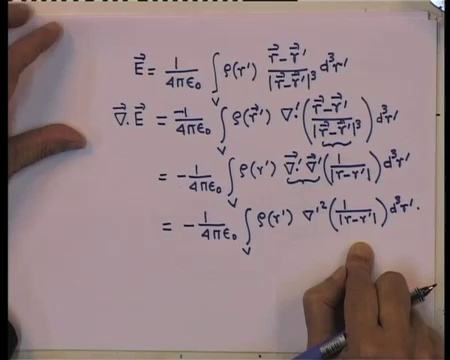 E⃗ = 1/4πε₀ ∫_V ρ(r') (r⃗ - r⃗')/|r⃗ - r⃗'|³ d³r'
∇⃗·E⃗ = -1/4πε₀ ∫_V ρ(r⃗') ∇'·((r⃗ - r⃗')/|r⃗ - r⃗'|³) d³r'
= - 1/4πε₀ ∫_V ρ(r') ∇⃗'·∇⃗' (1/|r - r'|) d³r'
= - 1/4πε₀ ∫_V ρ(r') ∇'² (1/|r - r'|) d³r'.